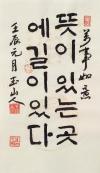 萬事如意
뜻이있는곳
에길이있다
壬辰元月玉山人